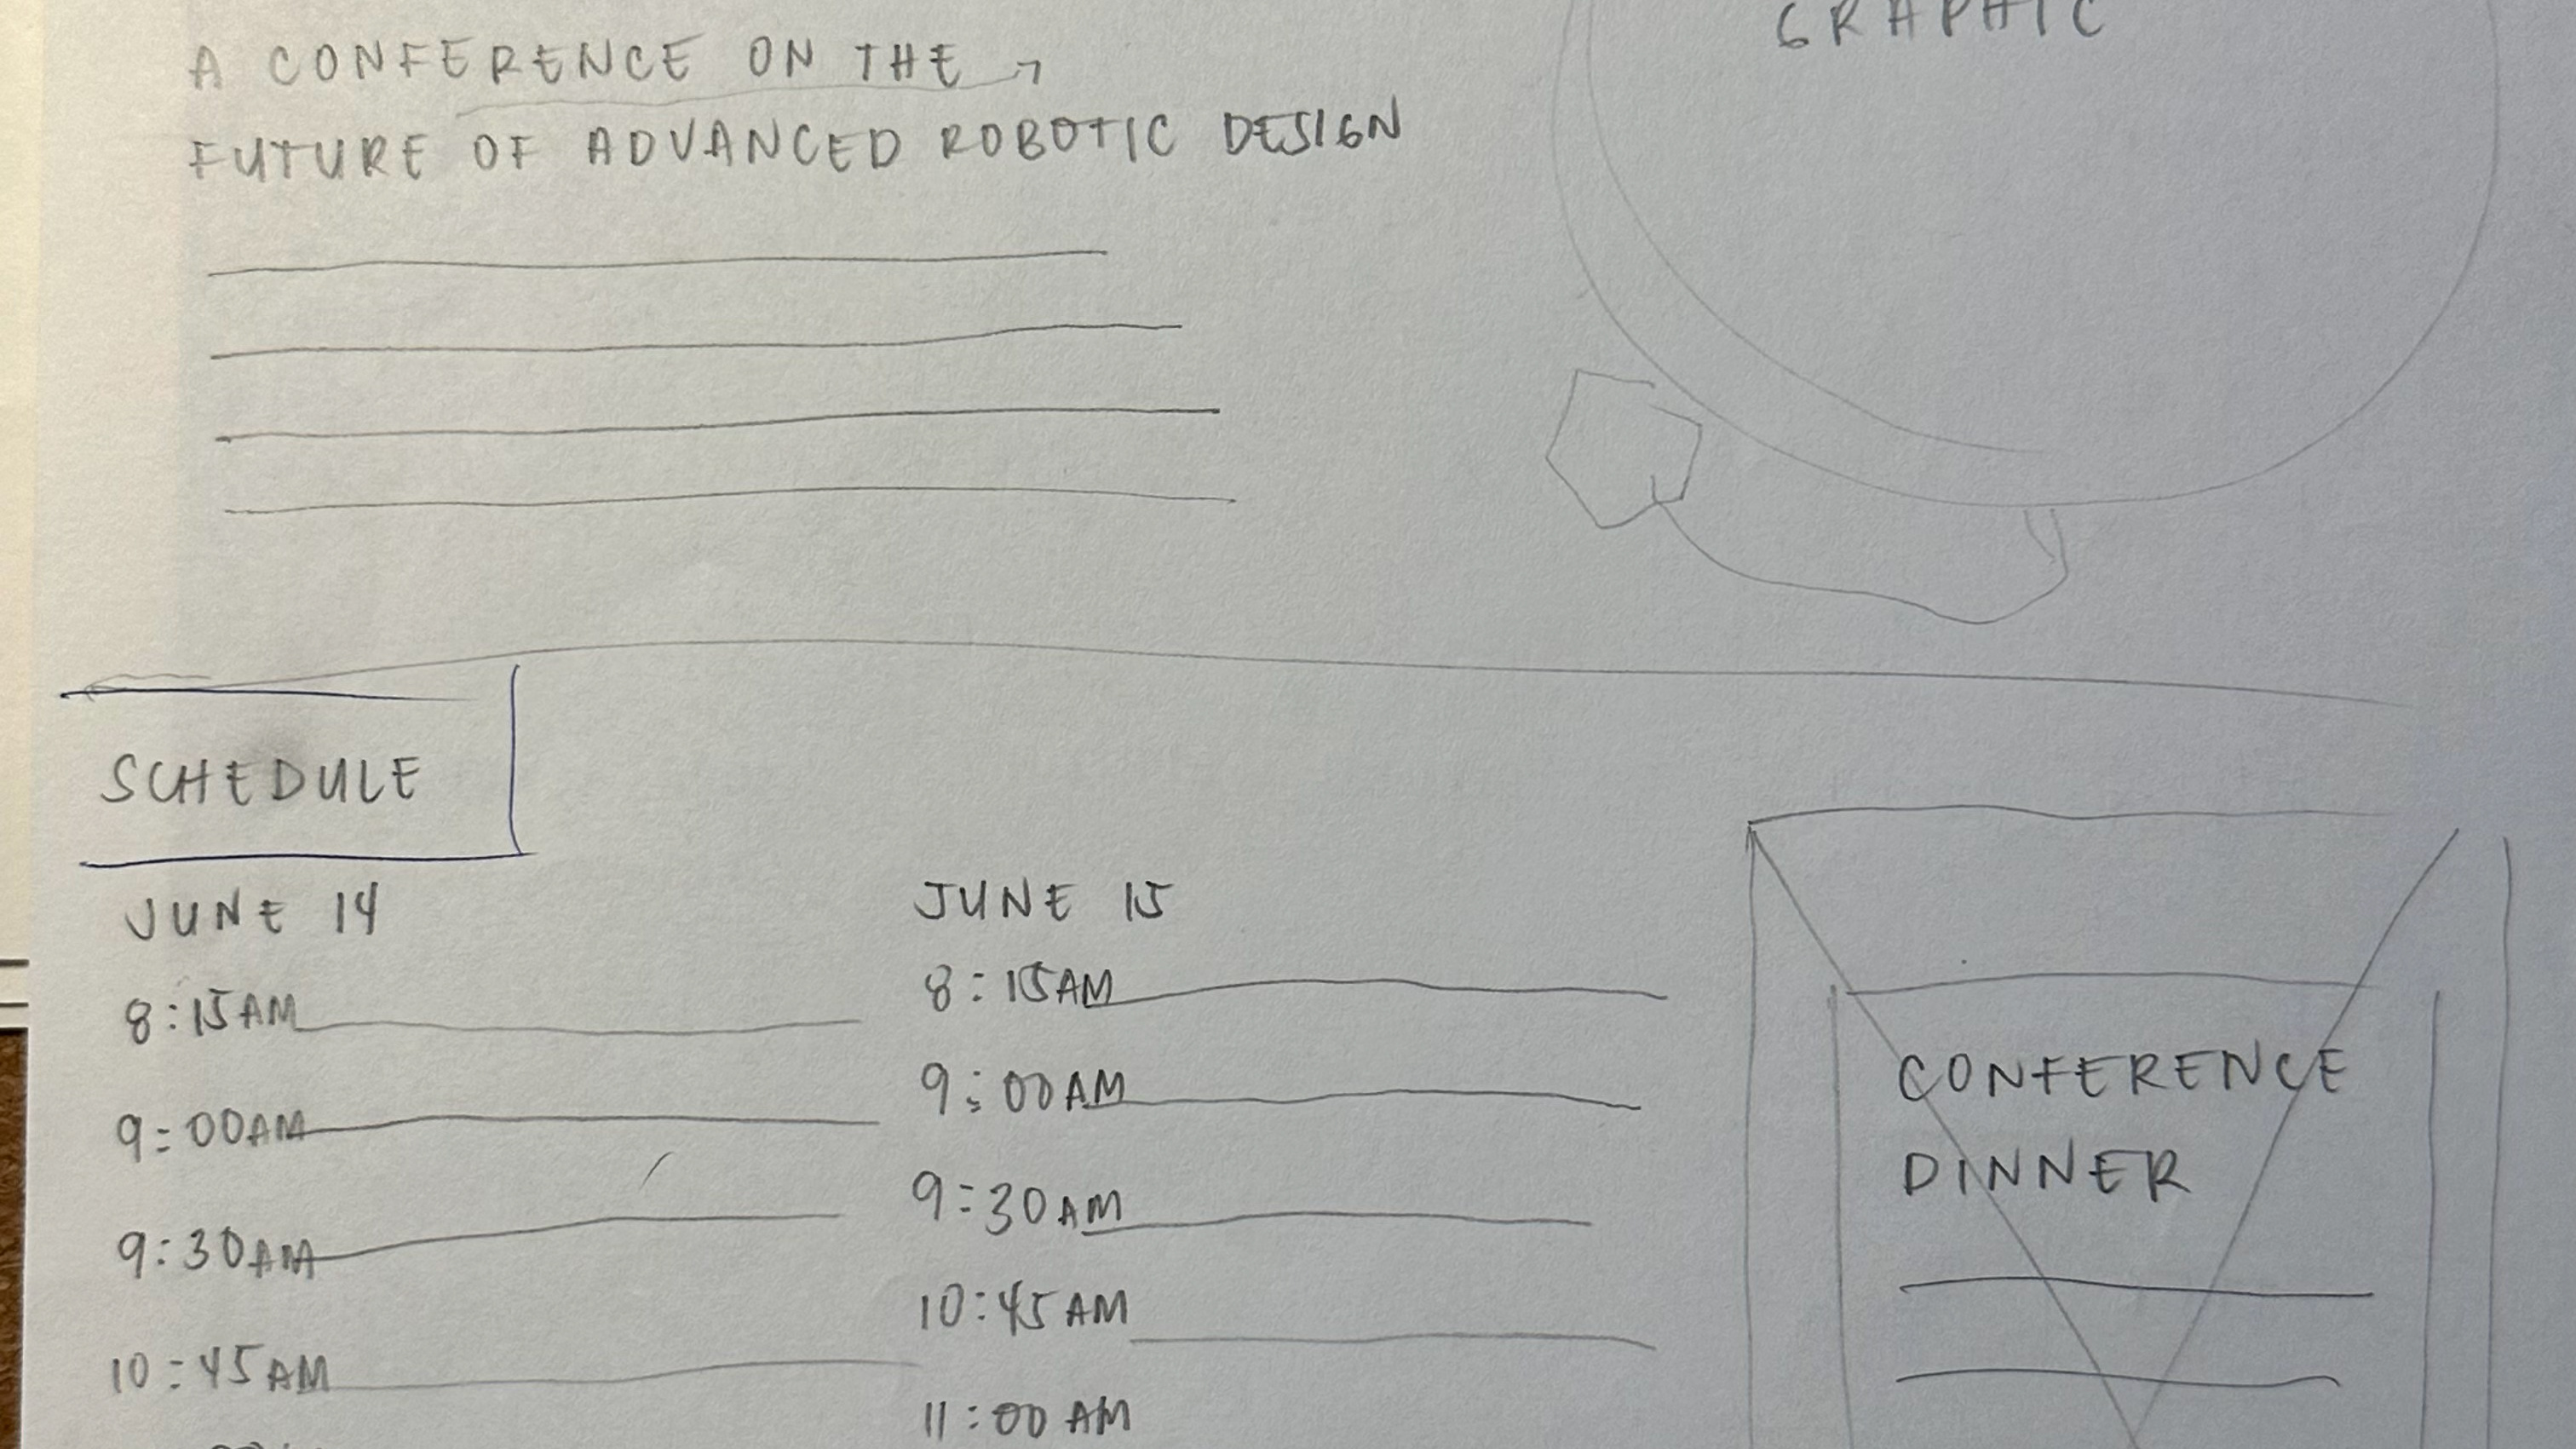 GRAPHIC
A CONFERENCE ON THE
FUTURE OF ADVANCED ROBOTIC DESIGN
SCHEDULE
JUNE 14
8:15AM
9:00AM
9:30AM
10:45AM
JUNE 15
8:15AM
9:00AM
9:30AM
10:45AM
11:00AM
CONFERENCE
DINNER